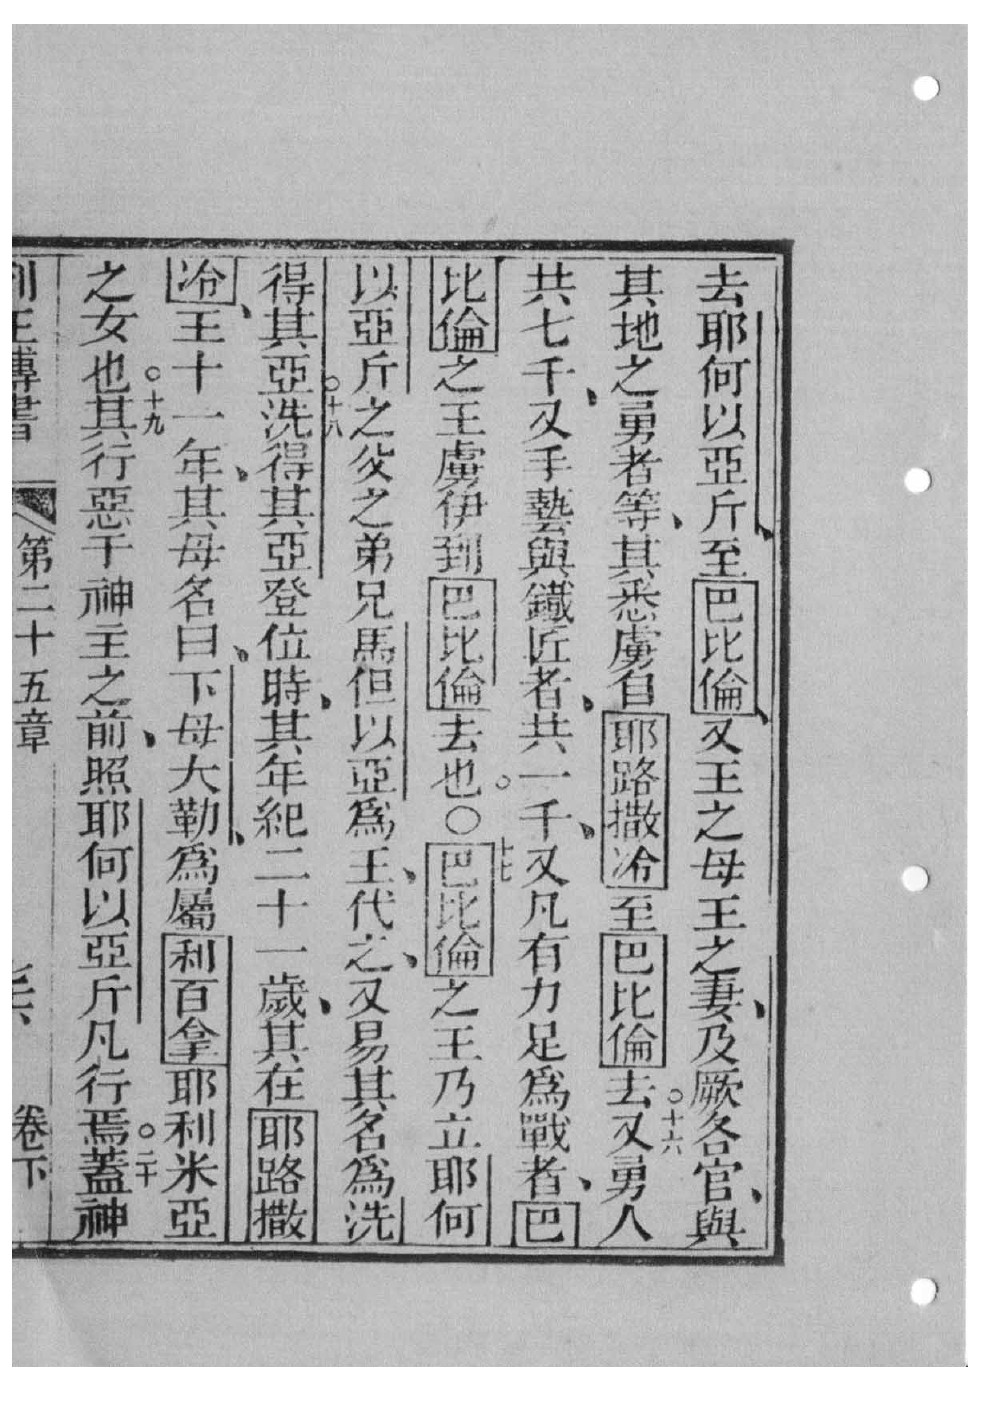 去耶何以亞斤、至巴比倫、又王之母王之妻、及厥各官、與
其地之勇者等、其悉虜自耶路撒冷至巴比倫去○十六又勇人
共七千、又手藝與鐵匠者、共一千、又凡有力足爲戰者、巴
比倫之王虜伊到巴比倫去也○○十七巴比倫之王乃立耶何
以亞斤之父之弟兄馬但以亞爲王、代之、又易其名爲洗
得其亞○十八洗得其亞登位時、其年紀二十一歲、其在耶路撒
冷、王十一年、其母名曰、下母大勒、爲屬利百拿耶利米亞
之女也○十九其行惡于神主之前、照耶何以亞斤凡行焉○二十蓋神
列王傳書 第二十五章 卷下